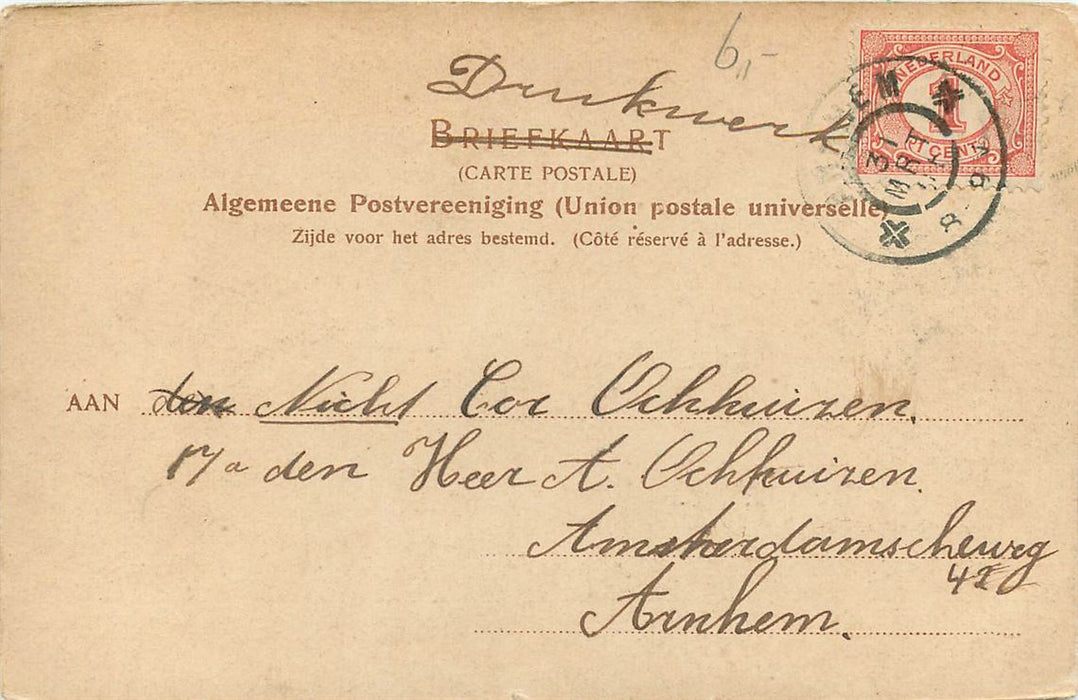 6,-
Drukwerk
BRIEFKAART
(CARTE POSTALE)
Algemeene Postvereeniging (Union postale universelle)
Zijde voor het adres bestemd. (Côté réservé à l'adresse.)
NEDERLAND
1
CENT
31
MRT
8-9V
AAN den Nicht Cor Ochhuizen.
p/a den Heer A. Ochhuizen.
Amsterdamscheweg
Arnhem.